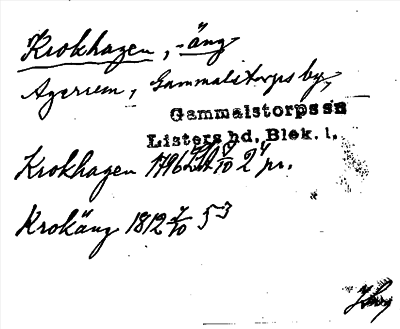 Krokhagen, -äng
Agerum, Gammalstorps by,
Gammalstorps sn
Listers hd. Blek. l.
Krokhagen 1796 2 pr.
Krokäng 1812 7/10 53